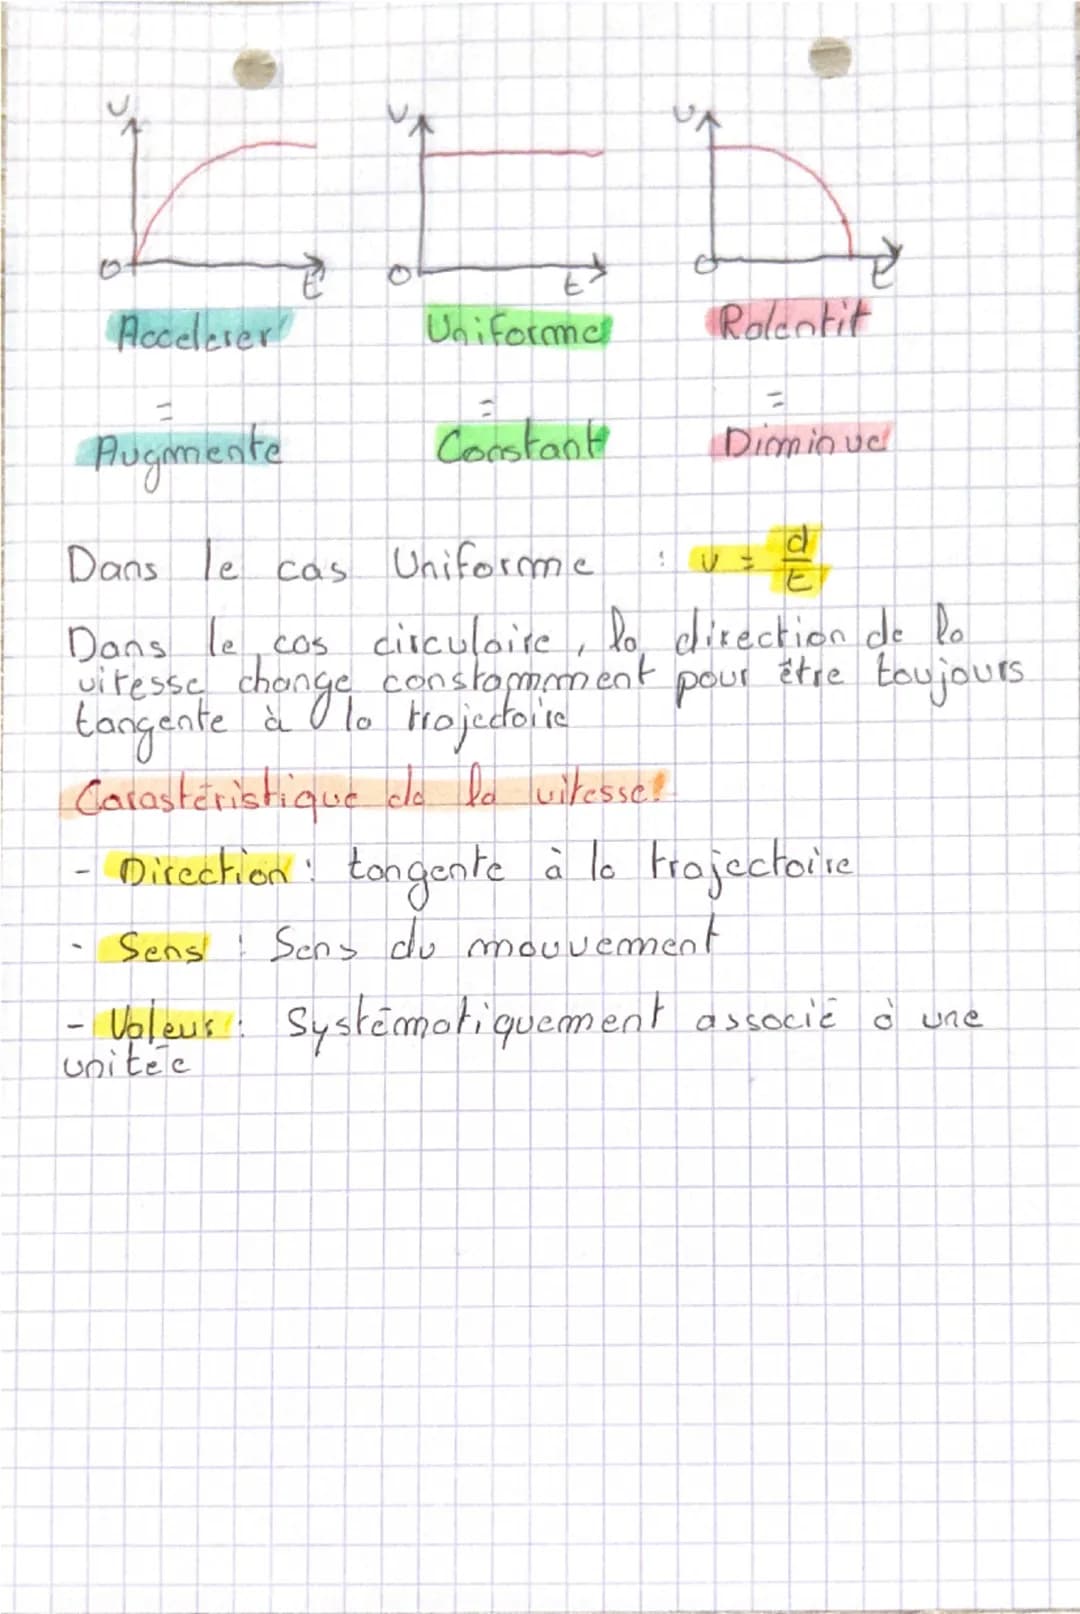 v v v
0 t 0 t 0 t
Accelerer Uniforme Ralentit
= = =
Augmente Constant Diminue
Dans le cas Uniforme : v = d/t
Dans le cas circulaire, la direction de la
vitesse change constamment pour être toujours
tangente à la trajectoire
Carastéristique de la vitesse:
- Direction : tangente à la trajectoire
- Sens : Sens du mouvement
- Valeur : Systématiquement associé à une
unitée